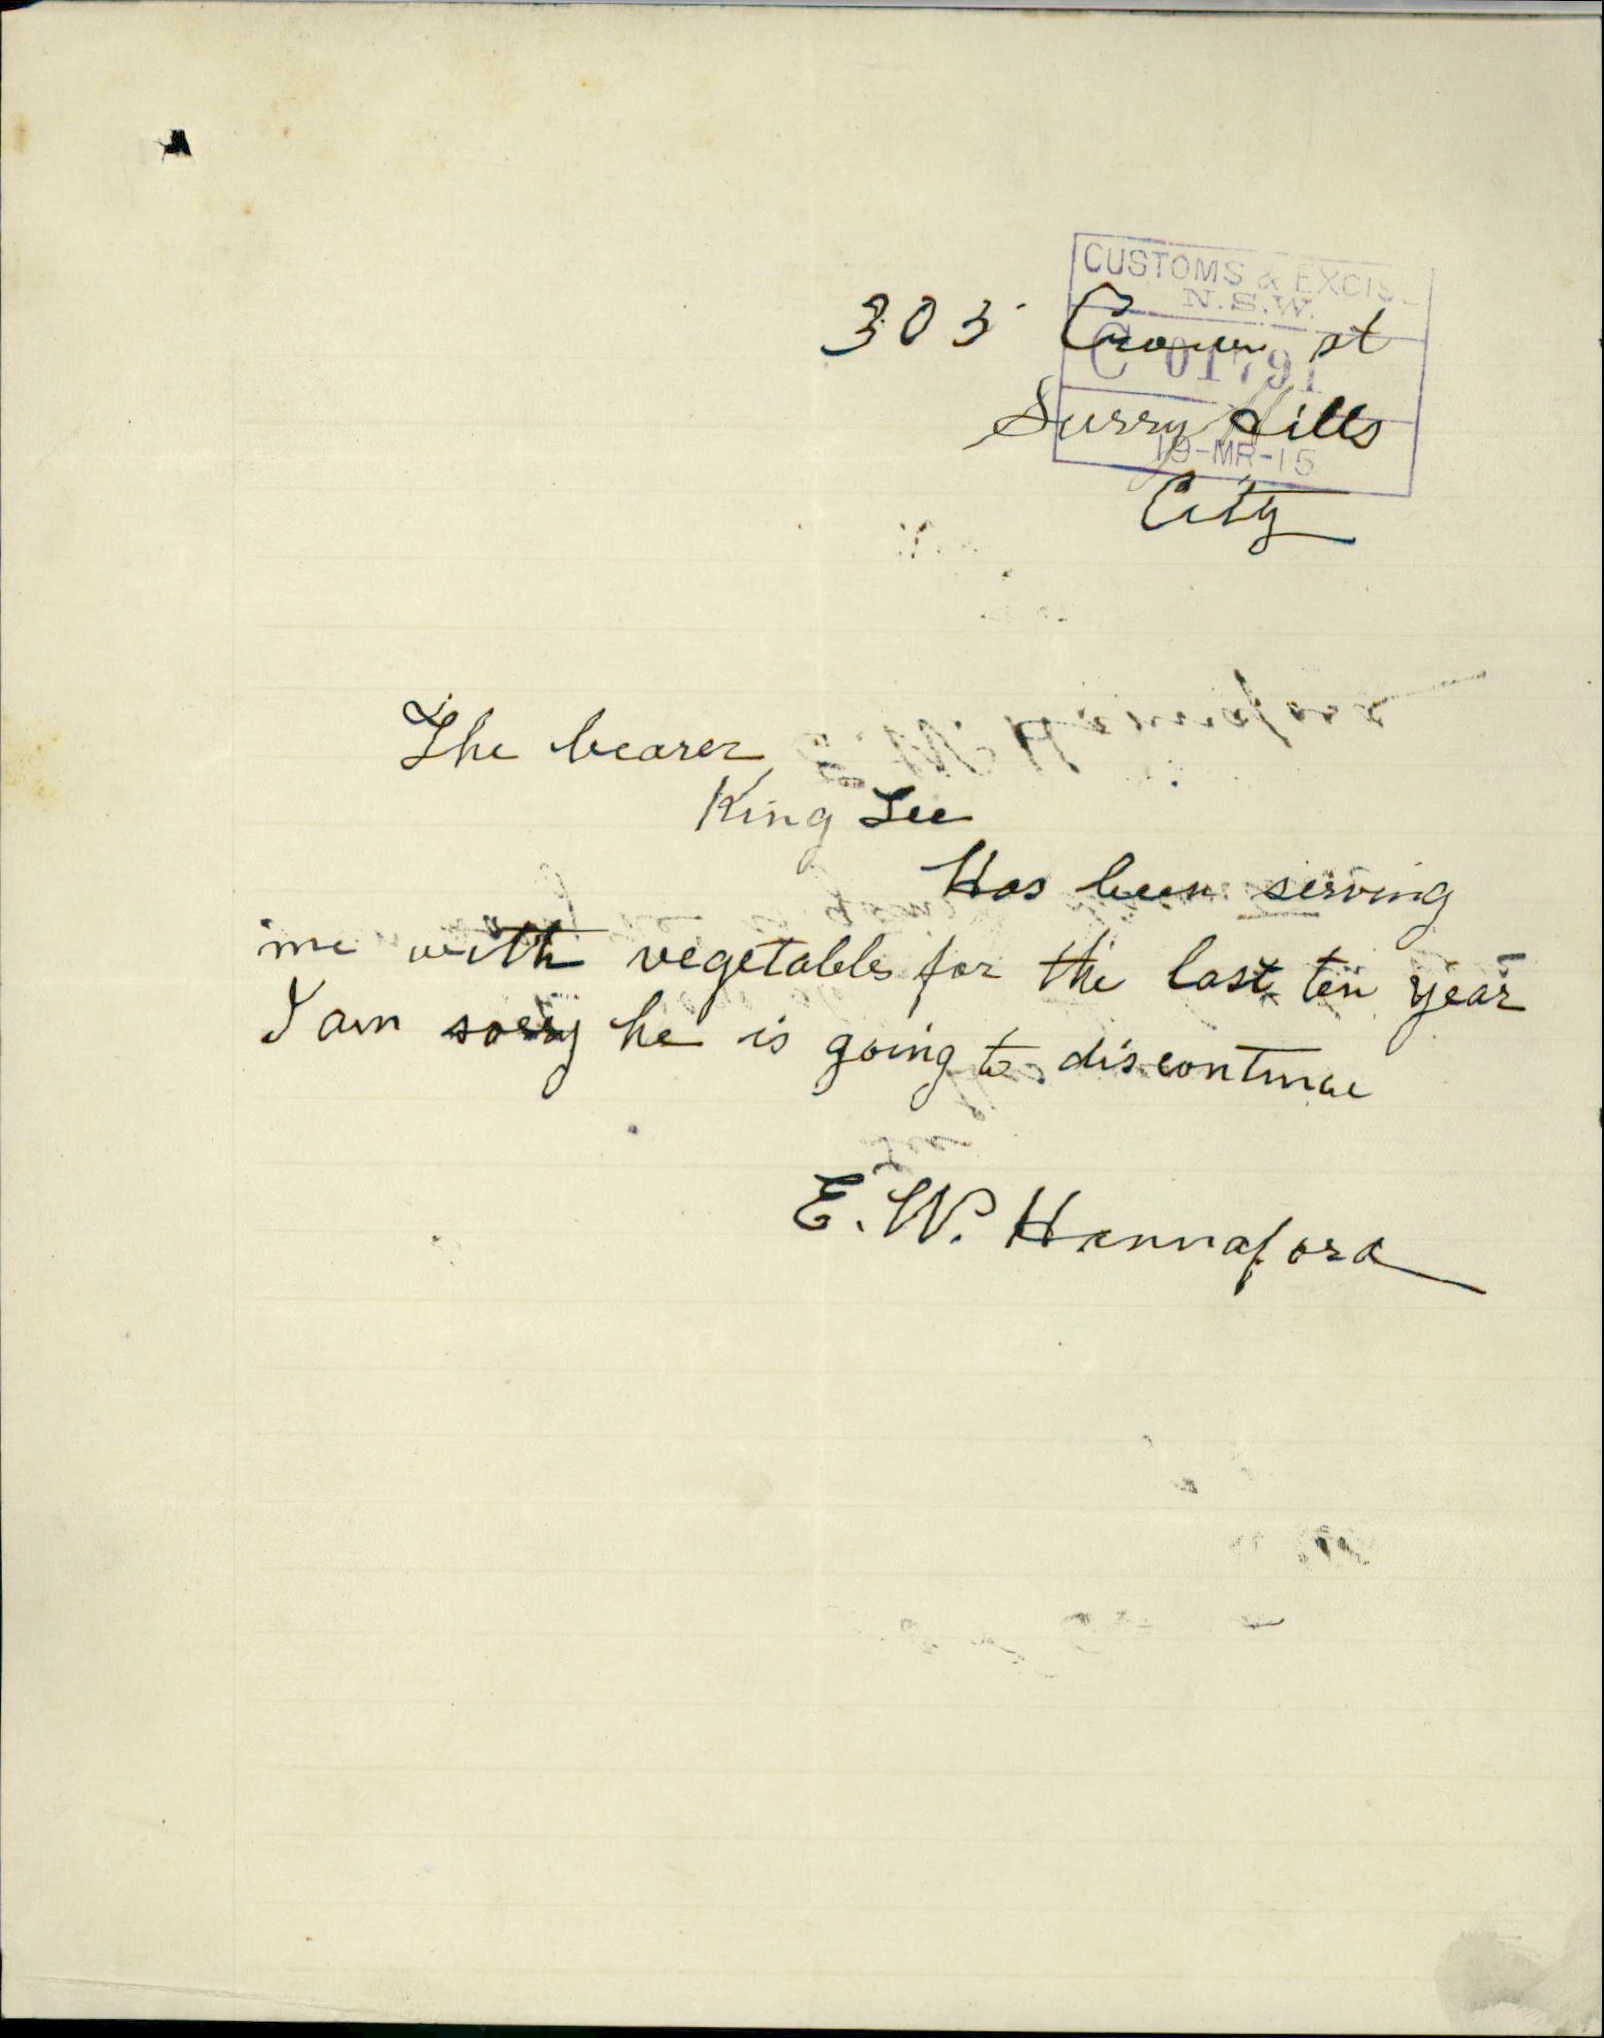 CUSTOMS & EXCISE
N.S.W.
303 Crown st
C 01791
Surry Hills
19-MR-15
City
The bearer
King Lee
Has been serving
me with vegetables for the last ten year
I am sorry he is going to discontinue
E. W. Hannaford